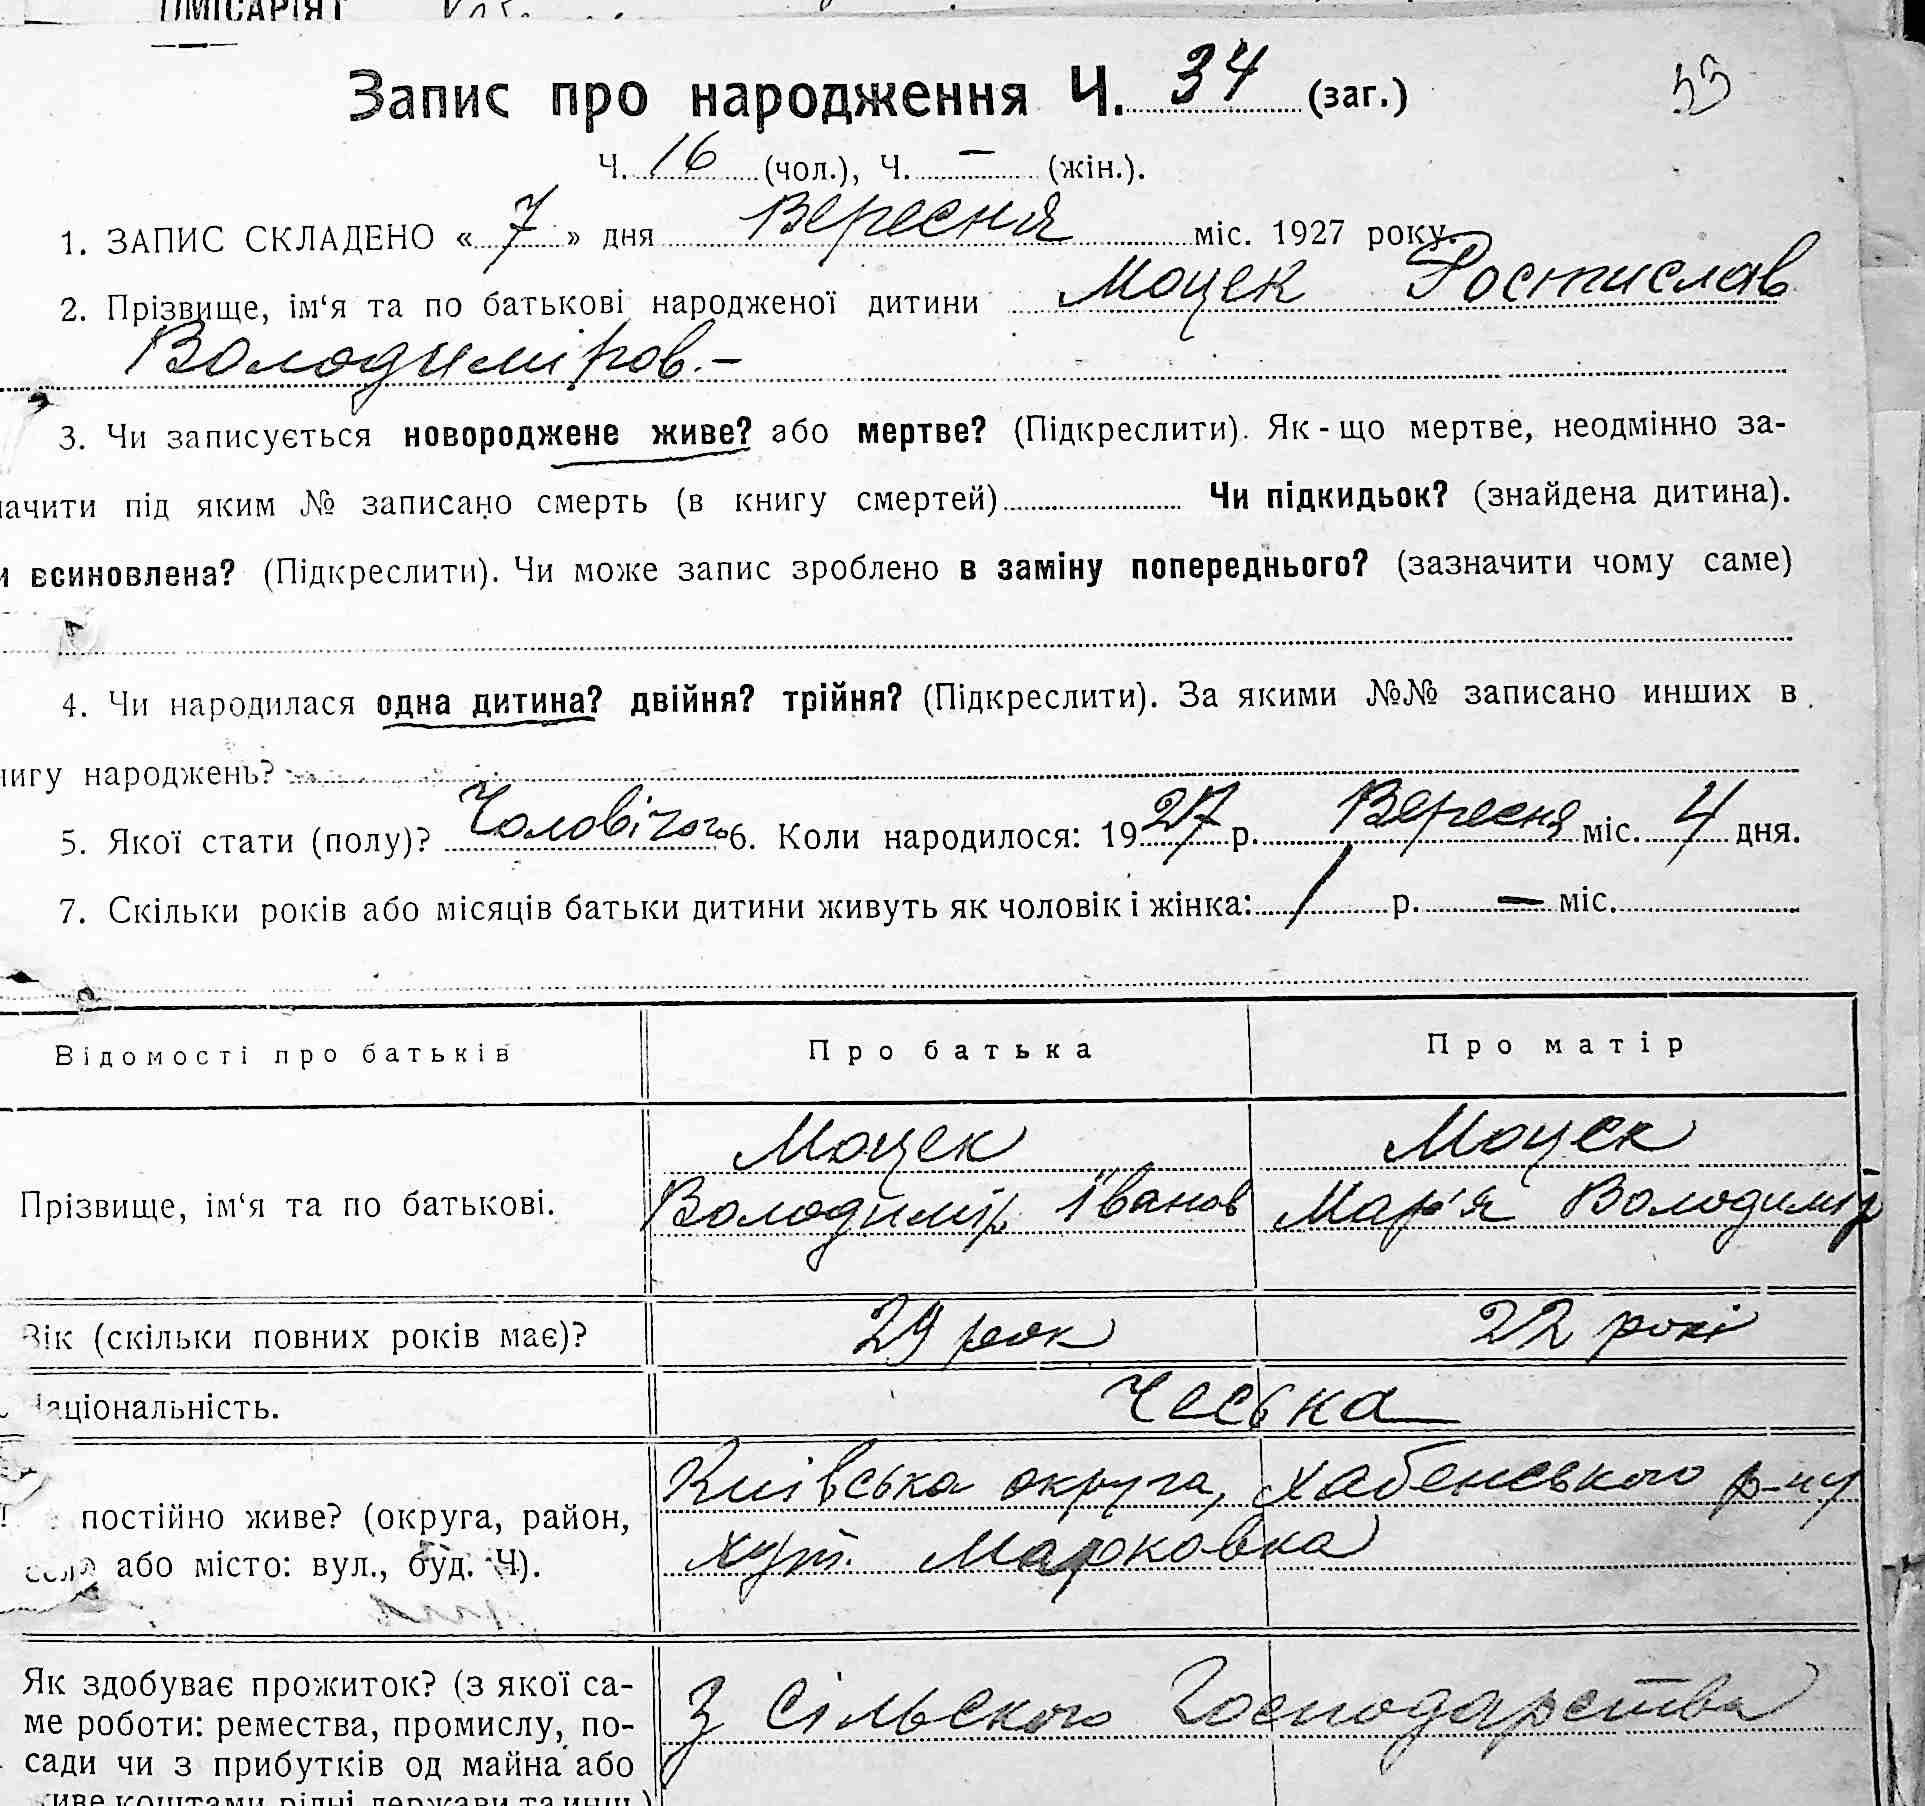 Запис про народження Ч. 34 (заг.)
53
Ч. 16 (чол.), Ч. — (жін.).
1. ЗАПИС СКЛАДЕНО « 7 » дня Вересня міс. 1927 року.
2. Прізвище, ім‘я та по батькові народженої дитини Моцек Ростислав
Володиміров.–
3. Чи записується новороджене живе? або мертве? (Підкреслити). Як - що мертве, неодмінно за-
начити під яким № записано смерть (в книгу смертей) Чи підкидьок? (знайдена дитина).
и всиновлена? (Підкреслити). Чи може запис зроблено в заміну попереднього? (зазначити чому саме)
4. Чи народилася одна дитина? двійня? трійня? (Підкреслити). За якими №№ записано инших в
нигу народжень?
5. Якої стати (полу)? Чоловічого 6. Коли народилося: 1927 р. Вересня міс. 4 дня.
7. Скільки років або місяців батьки дитини живуть як чоловік і жінка: 1 р. — міс.
Відомості про батьків Про батька Про матір
Моцек Моцек
Прізвище, ім‘я та по батькові. Володимір Іванов Мар'я Володимір
Вік (скільки повних років має)? 29 рок 22 рокі
Національність. Чеська
Київська округа, Хабенського р-ну
постійно живе? (округа, район,
хут. Марковка
село або місто: вул., буд. Ч).
Як здобуває прожиток? (з якої са-
ме роботи: ремества, промислу, по-
З сільского Господарства
сади чи з прибутків од майна або
иве коштами рідні держави та инш.)